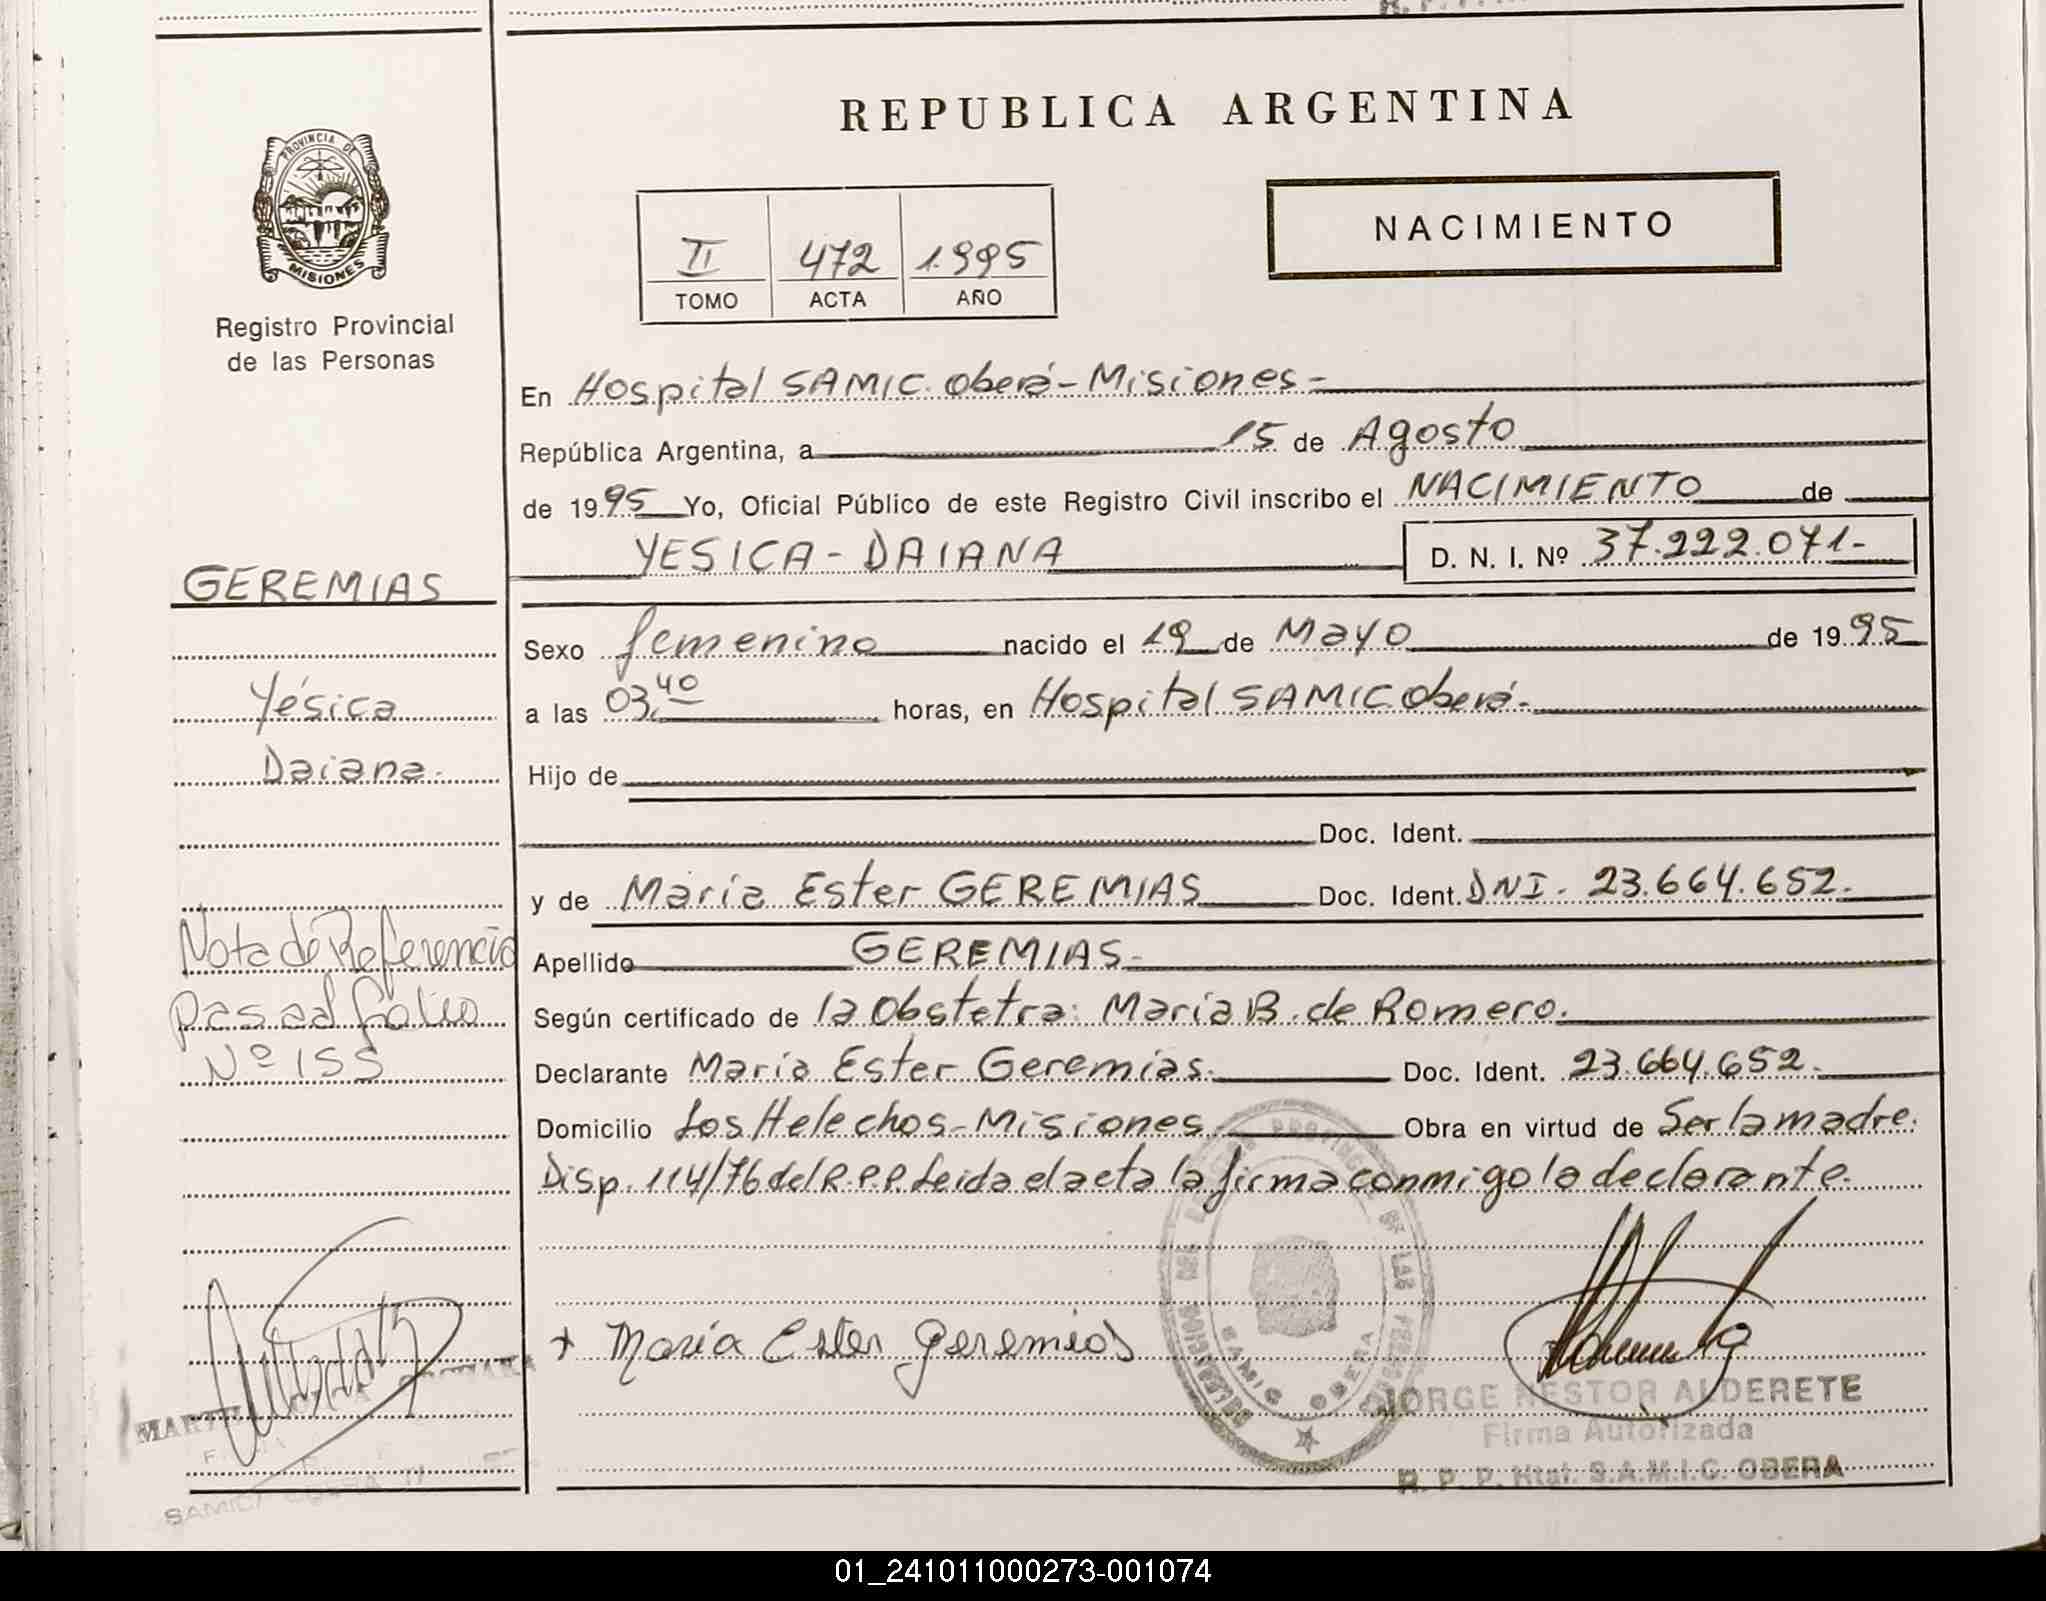 REPUBLICA ARGENTINA
PROVINCIA DE
MISIONES
Registro Provincial
de las Personas
II 472 1995
TOMO ACTA AÑO
NACIMIENTO
En Hospital SAMIC. Oberá - Misiones -
República Argentina, a 15 de Agosto
de 1995 Yo, Oficial Público de este Registro Civil inscribo el NACIMIENTO de
YESICA - DAIANA D. N. I. Nº 37.222.071-
GEREMIAS
Yésica
Daiana.
Sexo femenino nacido el 19 de Mayo de 1995
a las 03,40 horas, en Hospital SAMIC Oberá-
Hijo de
Doc. Ident.
y de María Ester GEREMIAS Doc. Ident. DNI. 23.664.652.
Apellido GEREMIAS-
Según certificado de la Obstetra: María B. de Romero.
Declarante María Ester Geremías. Doc. Ident. 23.664.652.
Domicilio Los Helechos - Misiones Obra en virtud de Ser la madre.
Disp. 114/76 del R.P.P. Leida el acta la firma conmigo la declarante.
Nota de Referencia
pasa al folio
Nº 155
+ María Ester Geremias
SAMIC OBERA
JORGE NESTOR ALDERETE
Firma Autorizada
R. P. P. Htal. S.A.M.I.C. OBERA
01_241011000273-001074